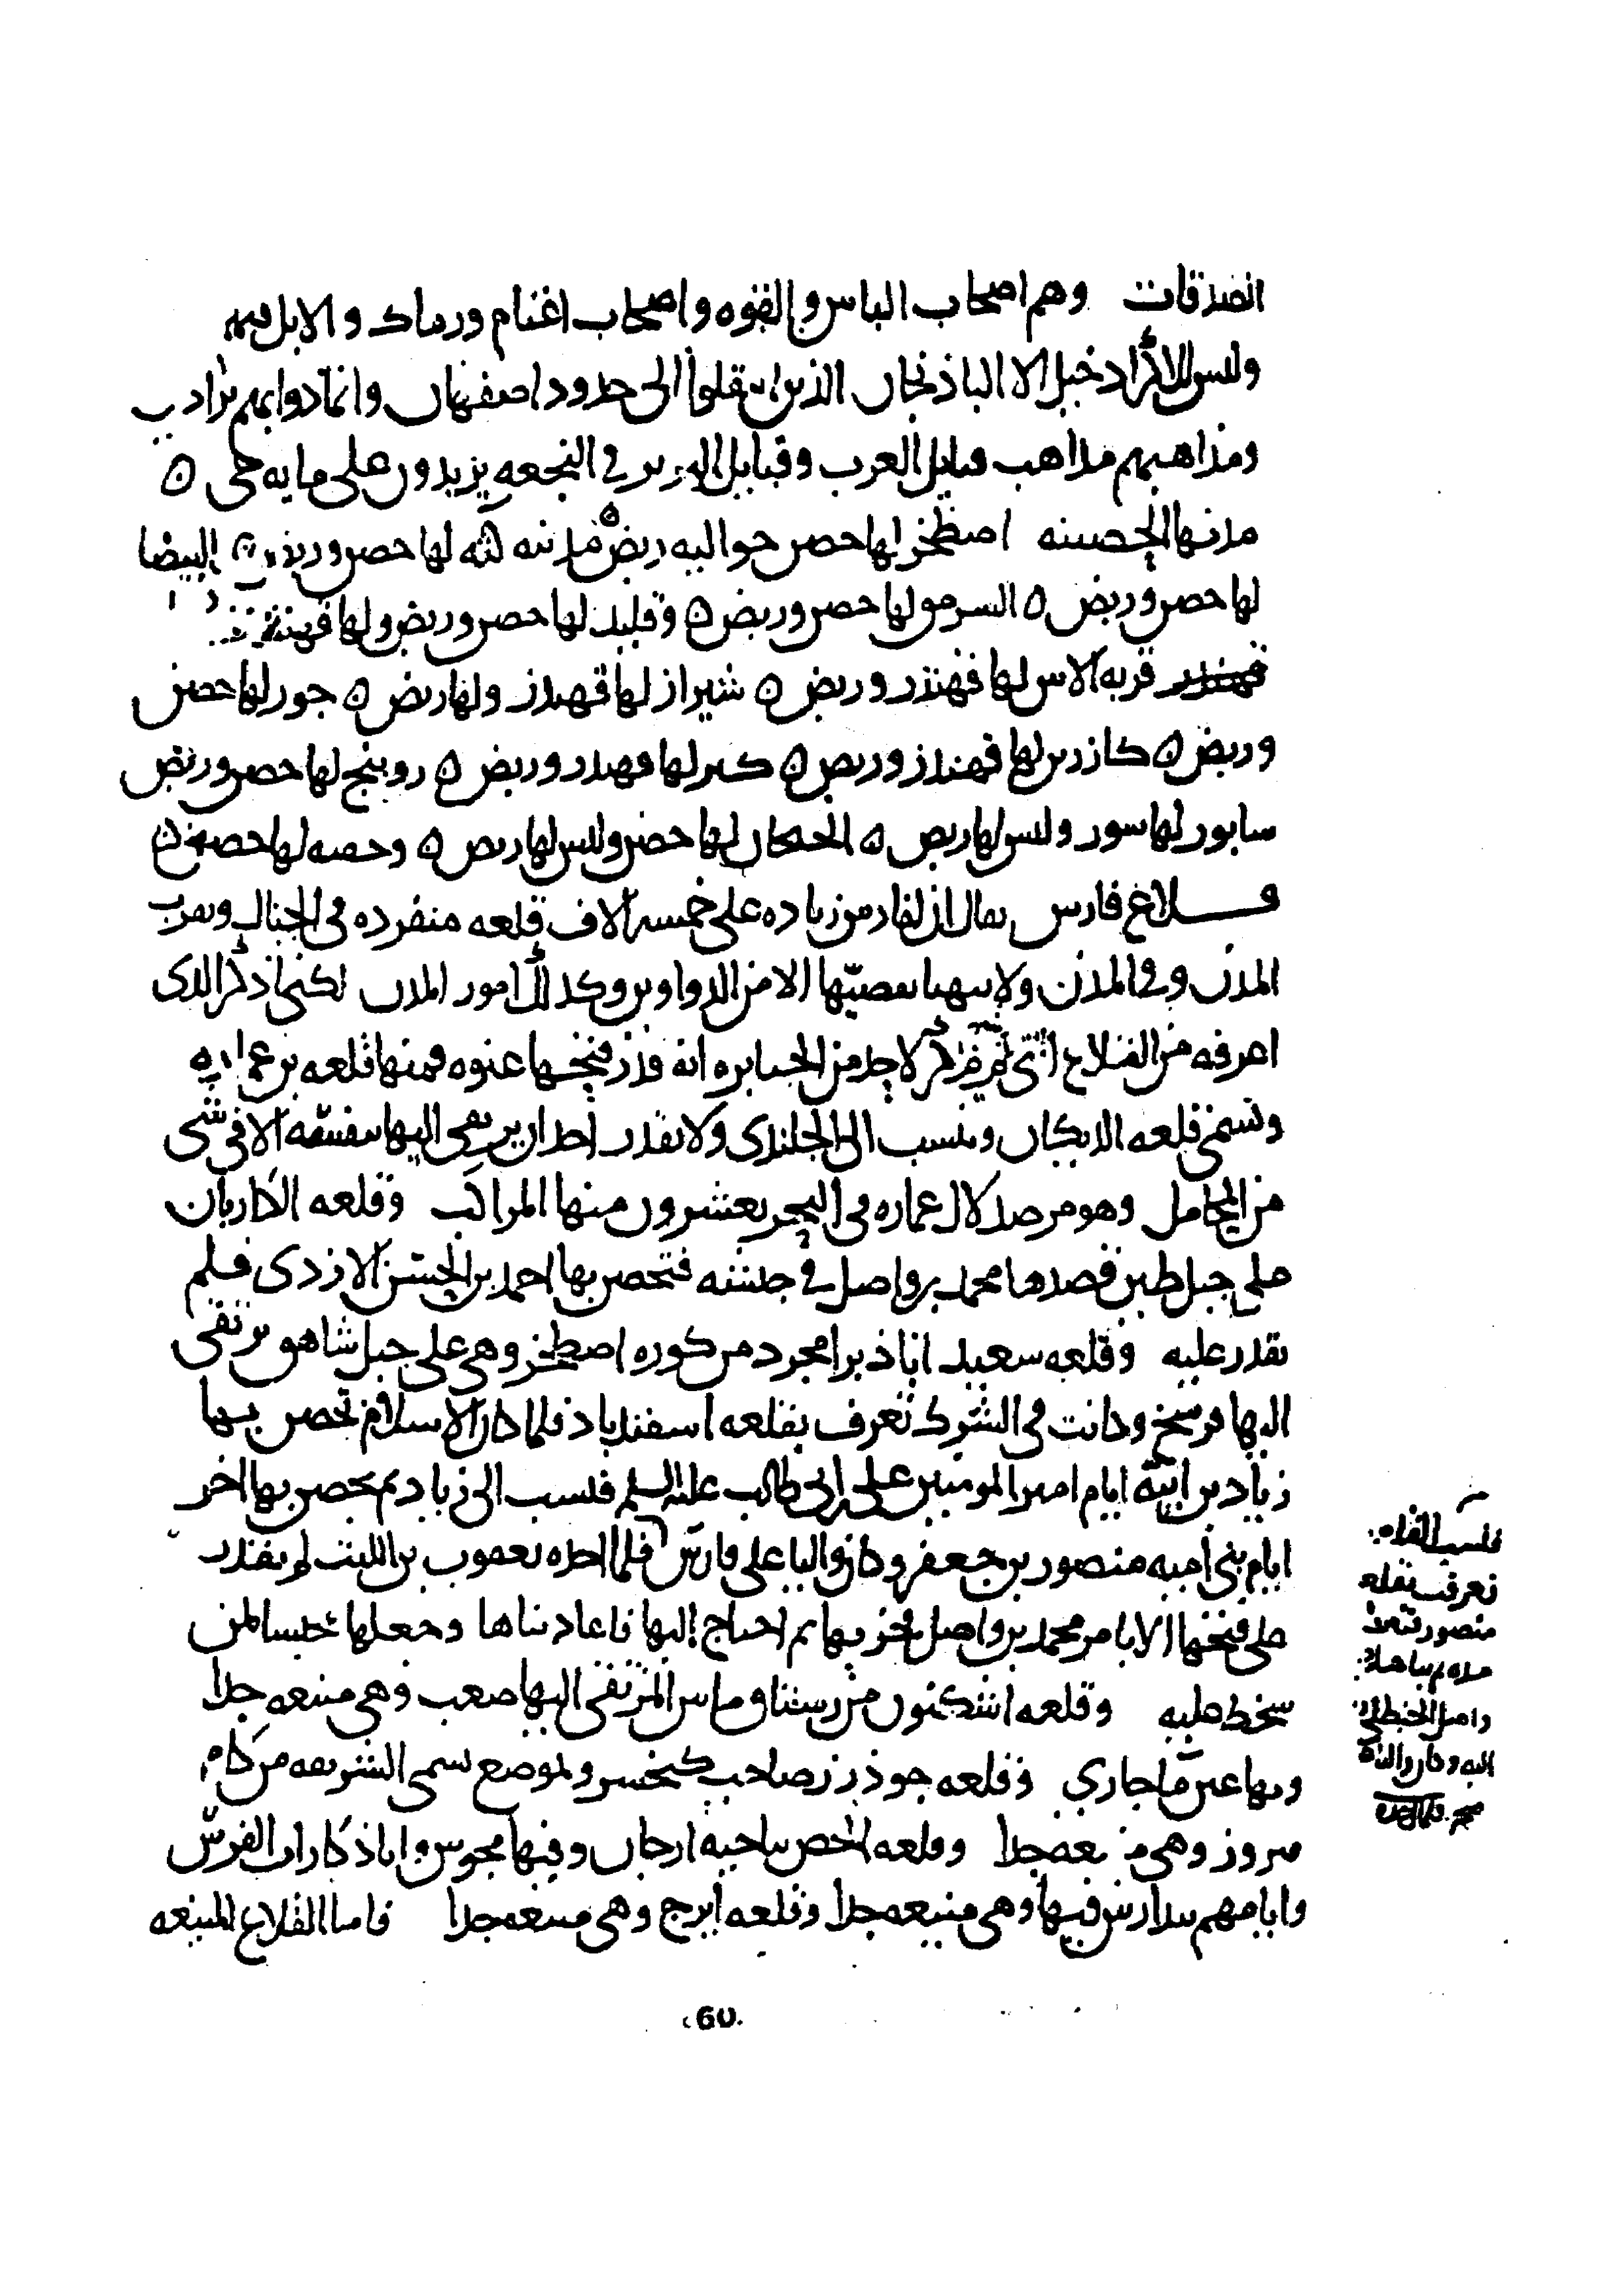 الصدقات وهم اصحاب الباس والقوه واصحاب اغنام ورماك والابل فيهم
وليس للاكراد خيل الا الباذنجان الذين انتقلوا الى حدود اصفهان وانما دوابهم براذين
ومذاهبهم مذاهب قبايل العرب وقبايل البربر في النجعه يزيدون على مايه حي ٥
مدنها الحصينه اصطخر لها حصن حواليه ربض مدينه كثه لها حصن وربض ٥ البيضا
لها حصن وربض ٥ السرمق لها حصن وربض ٥ وقليد لها حصن وربض ولها قهندز
قريه الاس لها قهندز وربض ٥ شيراز لها قهندز ولها ربض ٥ جور لها حصن
وربض ٥ كازرين لها قهندز وربض ٥ كير لها قهندز وربض ٥ رونيج لها حصن وربض
سابور لها سور وليس لها ربض ٥ الجنجان لها حصن وليس لها ربض ٥ وجفنه لها حصن ٥
قلاع فارس يقال ان لفارس زياده على خمسه الاف قلعه منفرده في الجبال وبقرب
المدن وفي المدن ولا يتهيا تقصيها الا من الدواوين وكذلك امور المدن لكني اذكر الذي
اعرفه من القلاع التي لم يذكر لاحد من الجبابره انه قدر فتحها عنوه فمنها قلعه بن عماره
وتسمى قلعه الديكان وينسب الى الجلندى ولا يقدر احد ان يرتقي اليها بنفسه الا في شي
من المحامل وهو مرصد لال عماره في البحر يعشرون منها المراكب وقلعه الكاريان
على جبل طين قصدها محمد بن واصل في جيشه فتحصن بها احمد بن الحسن الازدي فلم
يقدر عليه وقلعه سعيد اباذ برامجرد من كوره اصطخر وهي على جبل شاهق يرتقى
اليها فرسخ وكانت في الشرك تعرف بقلعه اسفندباذ فلما كان الاسلام تحصن بها
زياد بن ابيه ايام امير المومنين علي بن ابي طالب عليه السلم فنسب الى زياد ثم تحصن بها اخر
ايام بني اميه منصور بن جعفر وكان واليا على فارس فلما اخذه يعقوب بن الليث لم يقدر
على فتحها الا بامر محمد بن واصل فخربها ثم احتاج اليها فاعاد بناها وجعلها محبسا لمن
سخط عليه وقلعه اشكنون من رستاق ماين المرتقى اليها صعب وهي منيعه جدا
وبها عين ما جاري وقلعه جوذرز صاحب كيخسرو بموضع تسمى الشريعه من كام
فيروز وهي منيعه جدا وقلعه الجص بناحيه ارجان وفيها مجوس واباذكارات الفرس
وايامهم يتدارس فيها وهي منيعه جدا وقلعه ايرج وهي منيعه جدا فاما القلاع المنيعه
فنسبت القلعه
تعرف بقلعه
منصور فتعطلت
مده ثم بناها محمد بن
واصل الحنظلي
اليه وكان والي
60